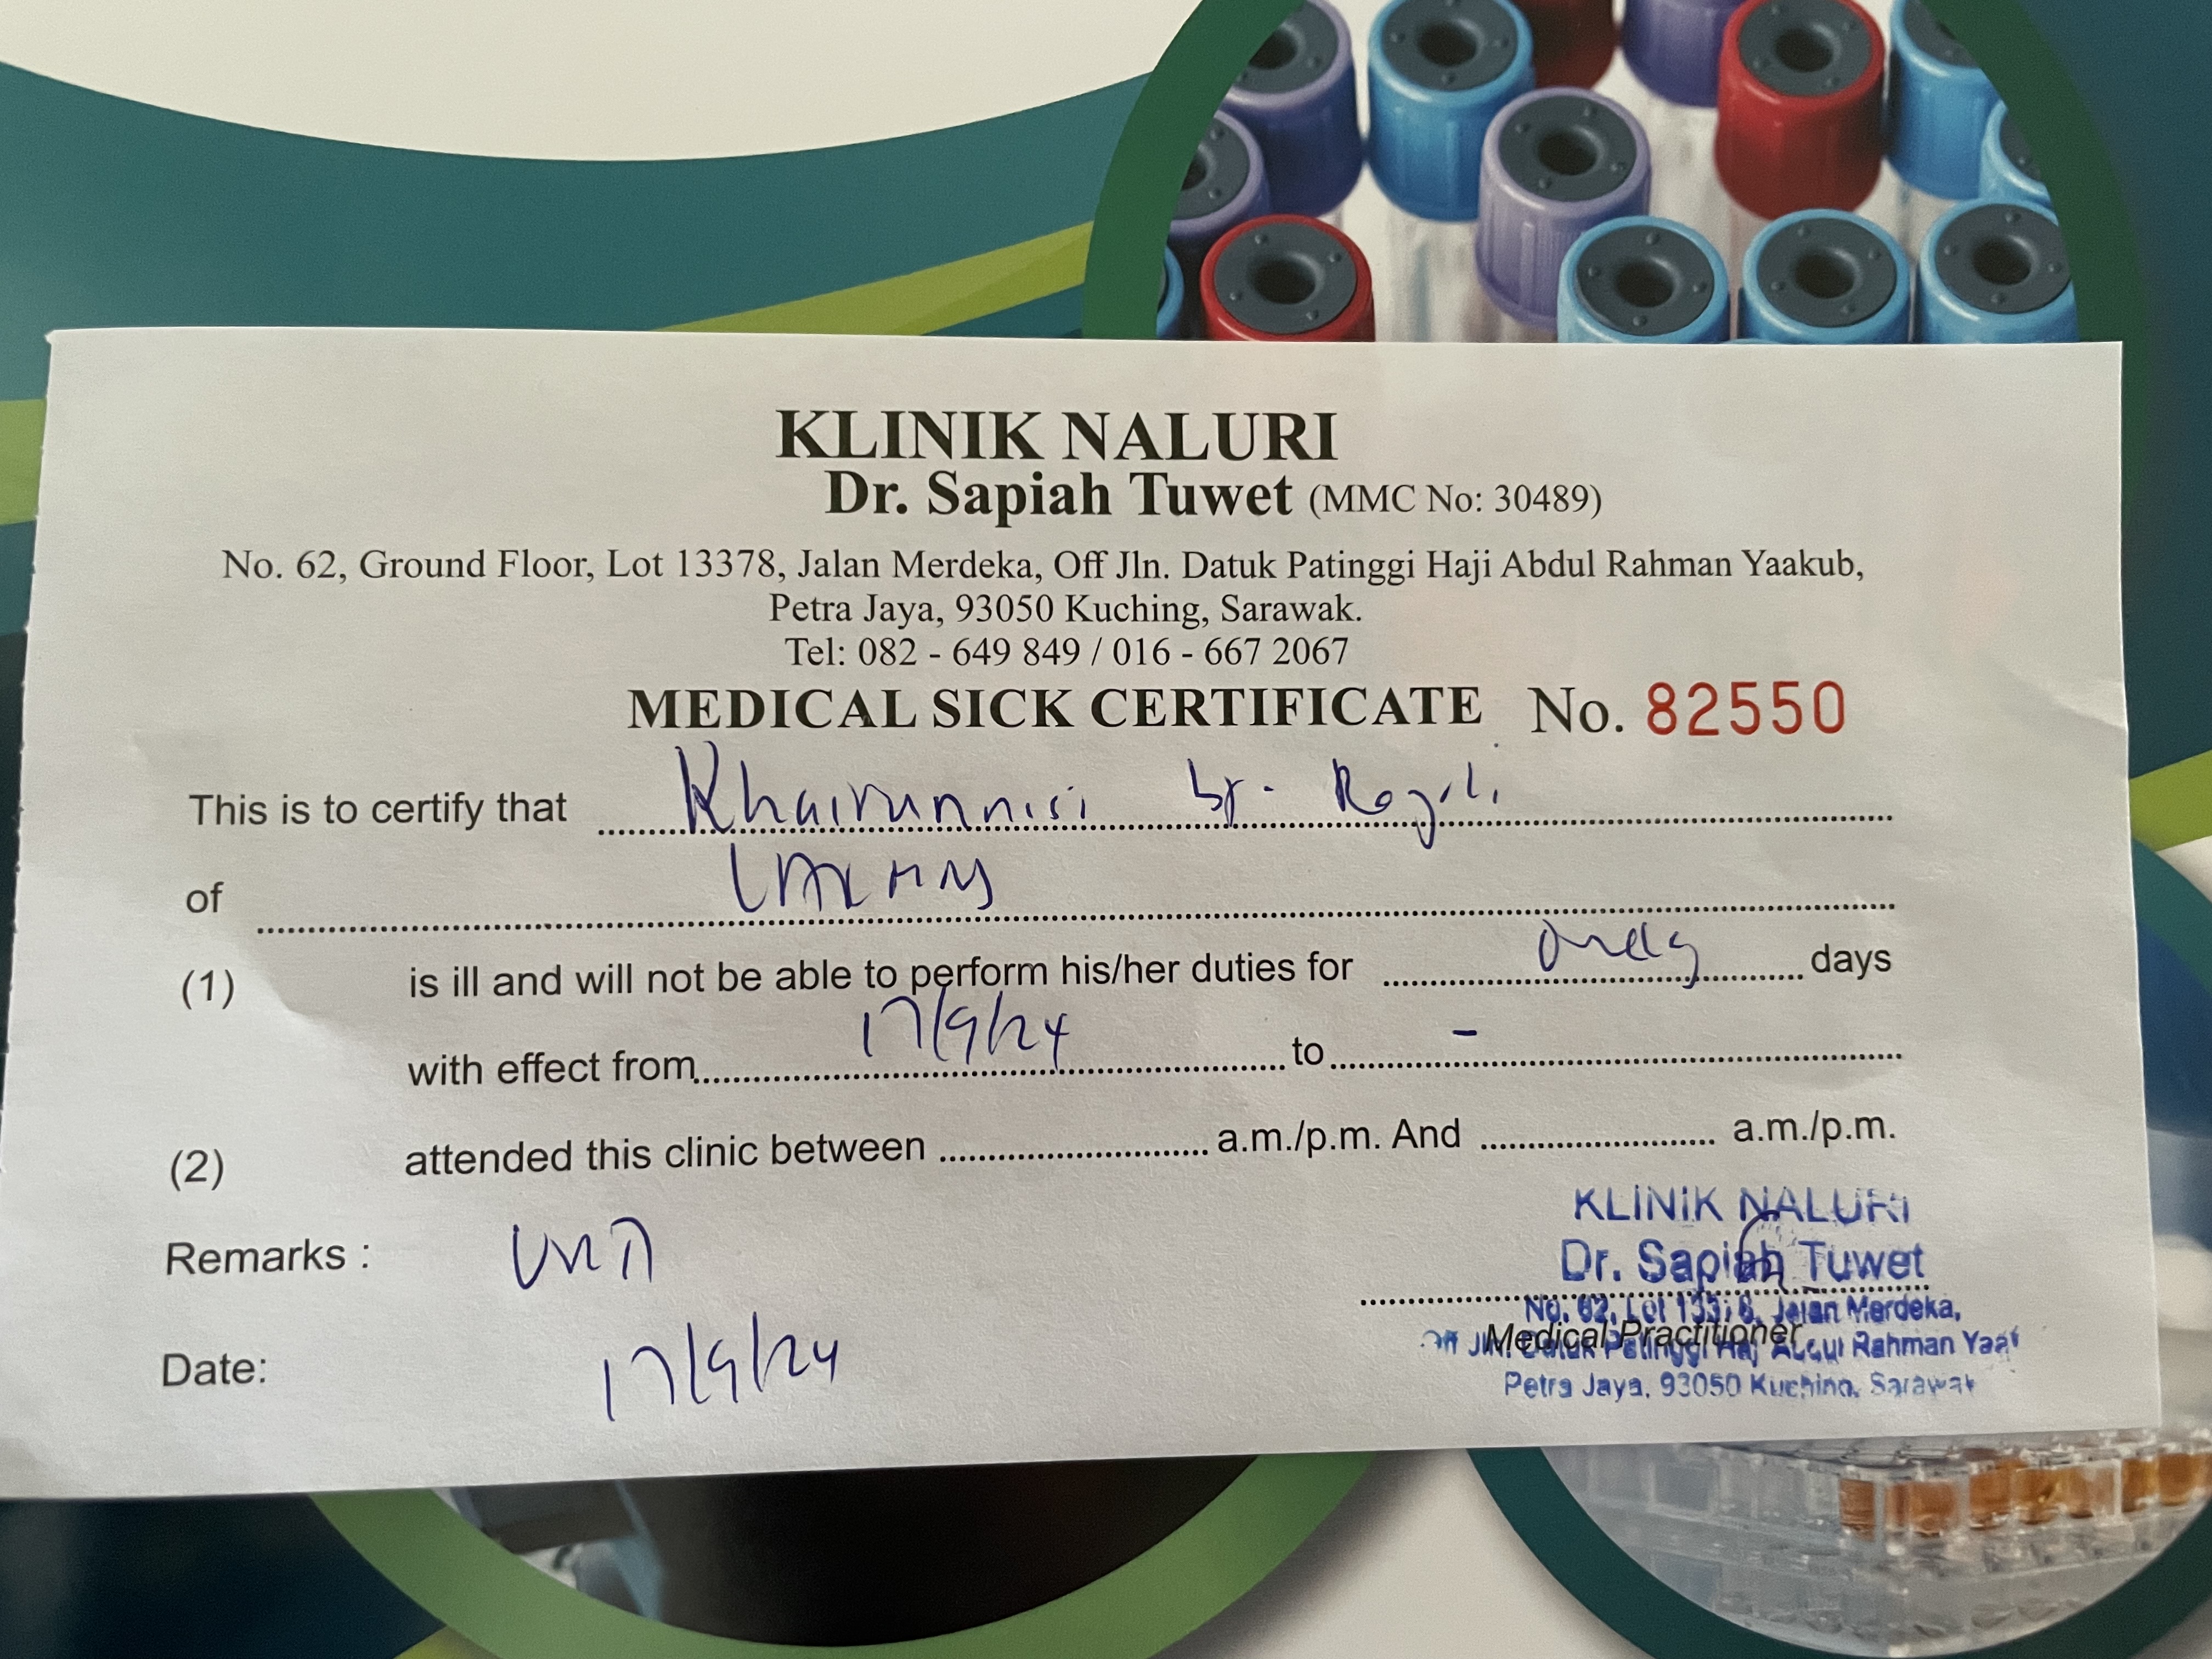 KLINIK NALURI
Dr. Sapiah Tuwet (MMC No: 30489)
No. 62, Ground Floor, Lot 13378, Jalan Merdeka, Off Jln. Datuk Patinggi Haji Abdul Rahman Yaakub,
Petra Jaya, 93050 Kuching, Sarawak.
Tel: 082 - 649 849 / 016 - 667 2067
MEDICAL SICK CERTIFICATE No. 82550
This is to certify that Khairunnisi bt. Rogili
of
(1) is ill and will not be able to perform his/her duties for days
with effect from 17/9/24 to -
(2) attended this clinic between a.m./p.m. And a.m./p.m.
Remarks :
Date: 17/9/24
KLINIK NALURI
Dr. Sapiah Tuwet
No. 62, Lot Jalan Merdeka,
Rahman
Medical Practitioner
Petra Jaya, 93050 Kuching, Sarawak